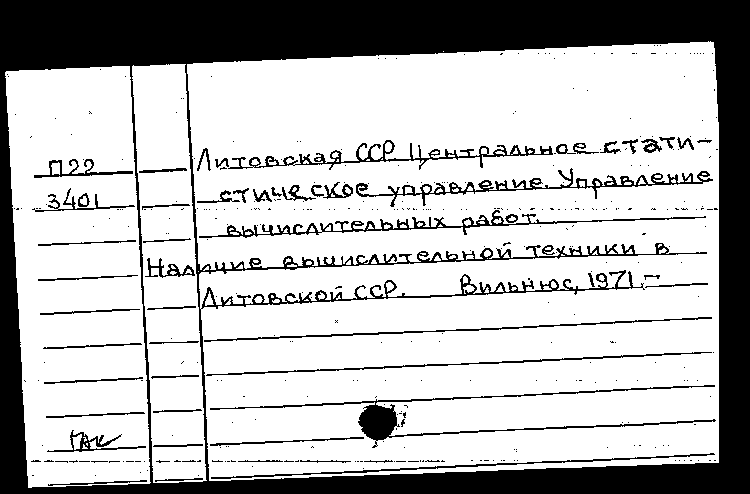 П22 Литовская ССР. Центральное стати-
3401 стическое управление. Управление
вычислительных работ.
Наличие вычислительной техники в
Литовской ССР. Вильнюс, 1971.-